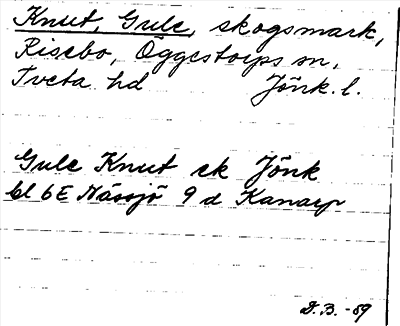 Knut, Gule, skogsmark,
Risebo, Öggestorps sn,
Tveta hd Jönk. l.
Gule Knut ek Jönk
bl 6E Nässjö 9 d Kanarp
D. B. -89